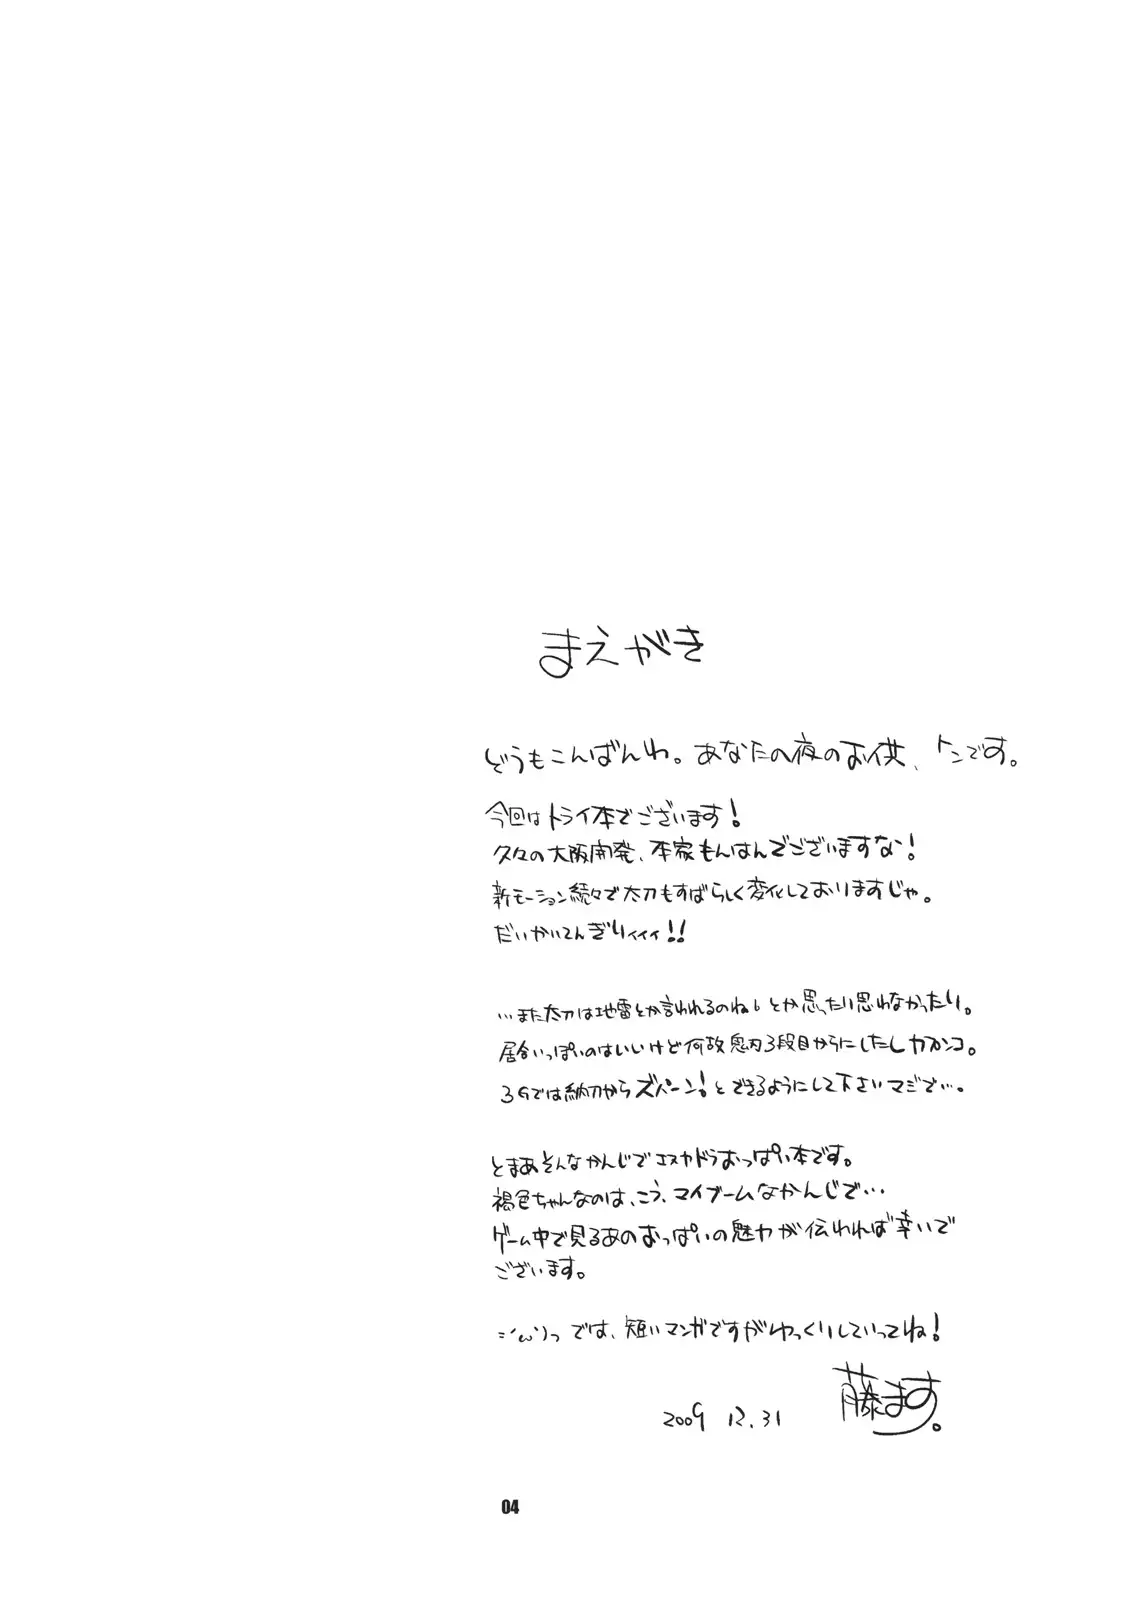 まえがき
どうもこんばんわ。あなたの夜のお供、トンです。
今回はトライ本でございます!
久々の大阪開発、本家もんはんでございますな!
新モーション続々で太刀もすばらしく変化しておりますじゃ。
だいかいてんぎりィィィ!!
…また太刀は地雷とか言われるのねとか思ったり思わなかったり。
居合いっぽいのはいいけど何故鬼刃3段目からにしたしカプンコ。
3Gでは納刀からズバーン!とできるようにして下さいマジで…。
とまあそんなかんじでエスカドラおっぱい本です。
褐色ちゃんなのは、こう、マイブームなかんじで…
ゲーム中で見るあのおっぱいの魅力が伝われば幸いで
ございます。
では、短いマンガですがゆっくりしていってね!
2009 12.31
藤ます。
04